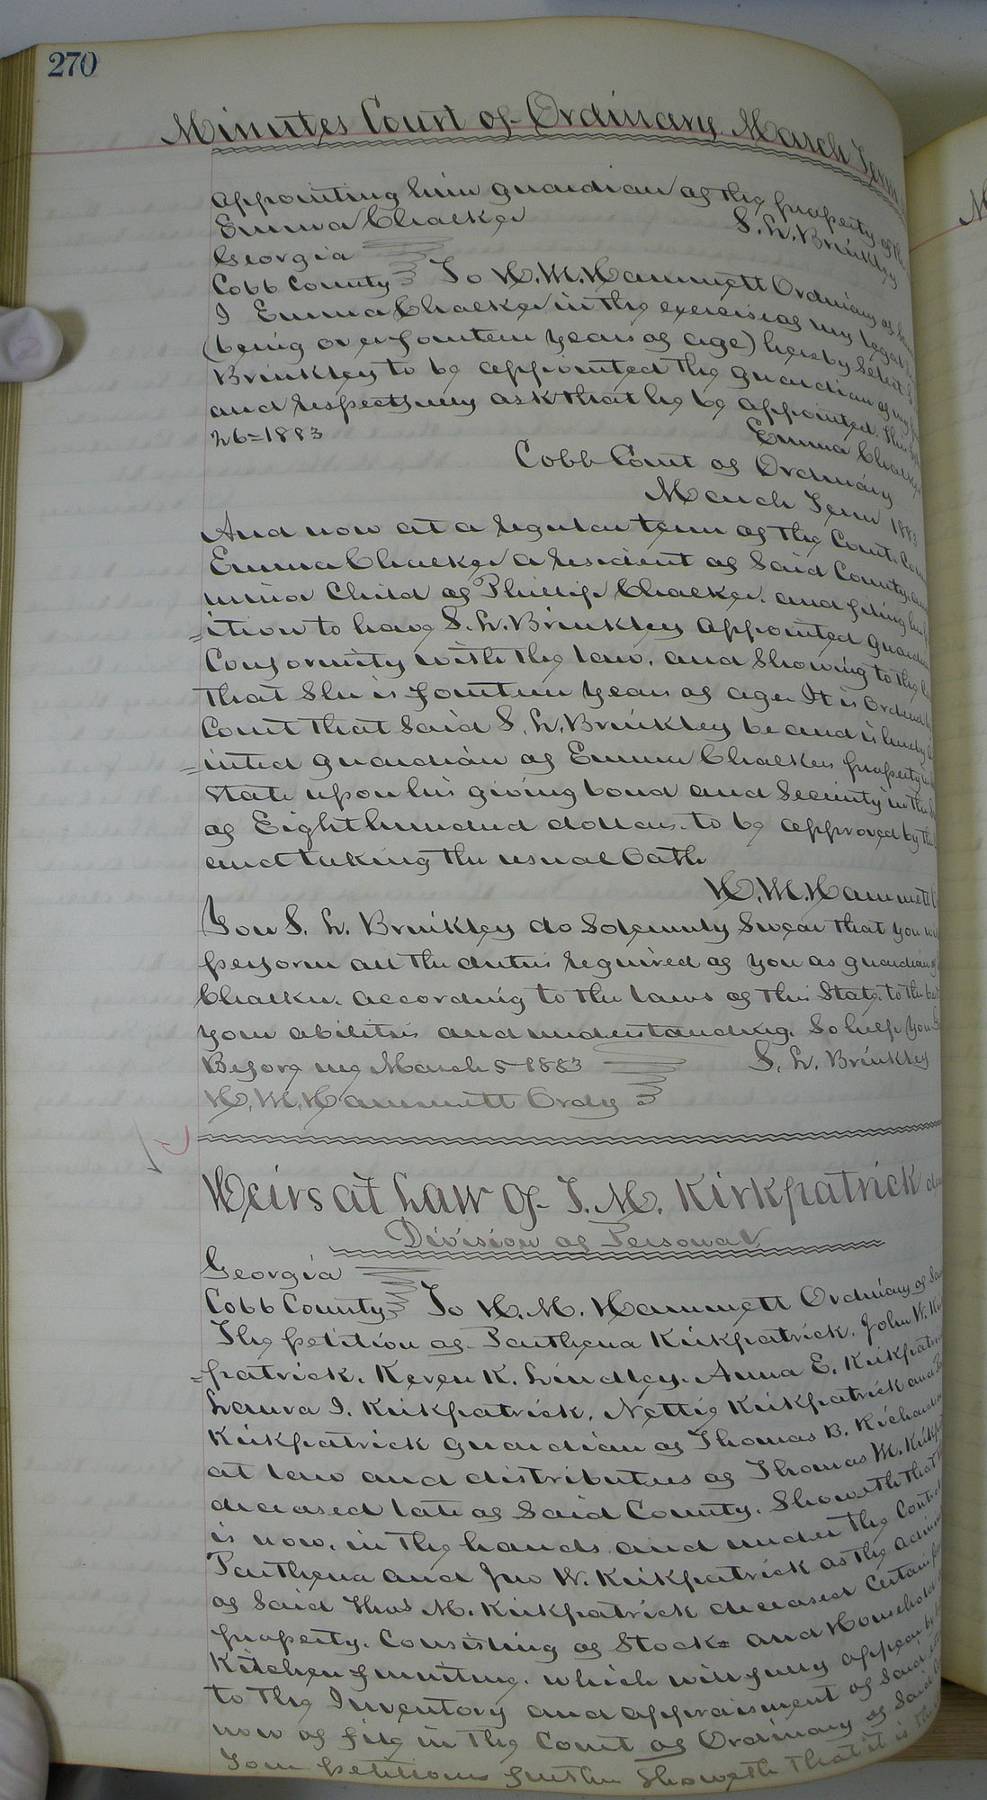 270
Minutes Court of Ordinary March Term
appointing him guardian of the property of
Emma Chalker S. L. Brinkley
Georgia
Cobb County To H. M. Hammett Ordinary of
I Emma Chalker in the exercise of my legal
(being over fourteen years of age) hereby select
Brinkley to be appointed the guardian of my
and respectfully ask that he be appointed. This
26=1883 Emma Chalker
Cobb Court of Ordinary
March Term 1883
And now at a regular term of the Court
Emma Chalker a resident of Said County,
minor Child of Phillip Chalker. and filing
=ition to have S. L. Brinkley appointed guardian
Conformity with the law. and Showing to the
that She is fourteen years of age. It is Ordered
Court that Said S. L. Brinkley be and is hereby
=inted guardian of Emma Chalkers property
State upon his giving bond and Security in the
of Eight hundred dollars. to be approved by the
and taking the usual Oath
H. M. Hammett
You S. L. Brinkley do Solemnly Swear that you
perform all the duties required of you as guardian
Chalker. according to the laws of this State. to the
your abilities and understanding. So help you
Before me March 5 1883 S. L. Brinkley
H. M. Hammett Ordy
Heirs at Law of T. M. Kirkpatrick
Division of Personal
Georgia
Cobb County To H. M. Hammett Ordinary of
The petition of Parthena Kirkpatrick. John W.
=patrick. Keren K. Lindley. Anna E.
Laura I. Kirkpatrick. Nettie Kirkpatrick and
Kirkpatrick guardian of Thomas B.
at law and distributees of Thomas M.
deceased late of Said County. Showeth that
is now. in the hands and under the
Parthena and Jno W. Kirkpatrick as the
of Said Thos M. Kirkpatrick deceased Certain
property. Consisting of Stock= and Household
Kitchen furniture. which will fully appear by
to the Inventory and appraisment of Said
now of file in the Court of Ordinary of Said
Your petitioners further Showeth that it is